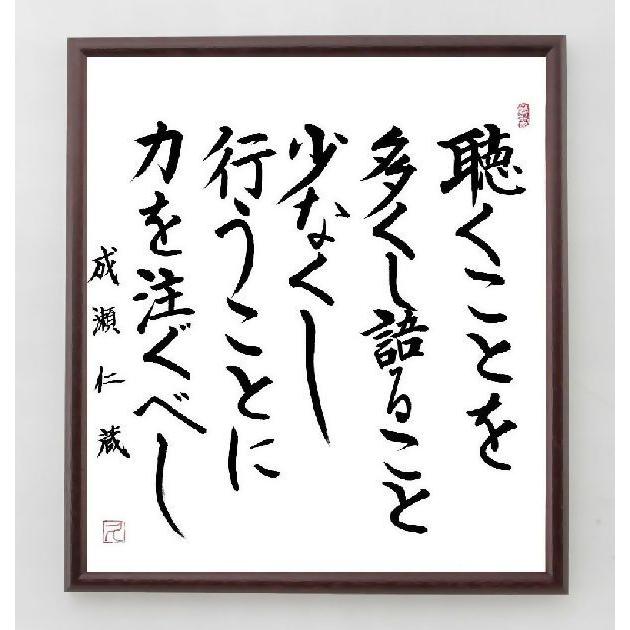 聴くことを
多くし語ること
少なくし
行うことに
力を注ぐべし
成瀬仁蔵